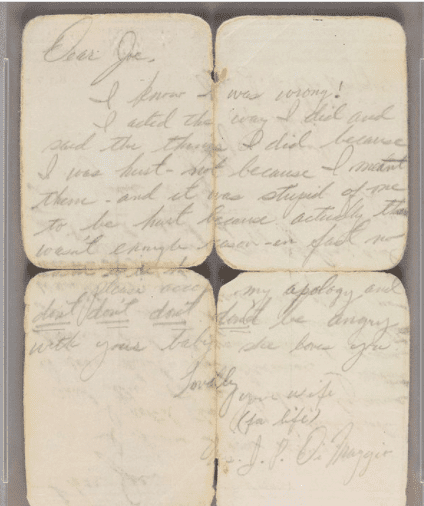 Dear Joe,
I know I was wrong!
I acted the way I did and
said the things I did because
I was hurt - not because I meant
them - and it was stupid of me
to be hurt because actually there
wasn't enough reason - in fact no
please accept my apology and
don't don't don't don't be angry
with your baby she loves you
Lovingly
your wife
(for life)
J. P. Di Maggio